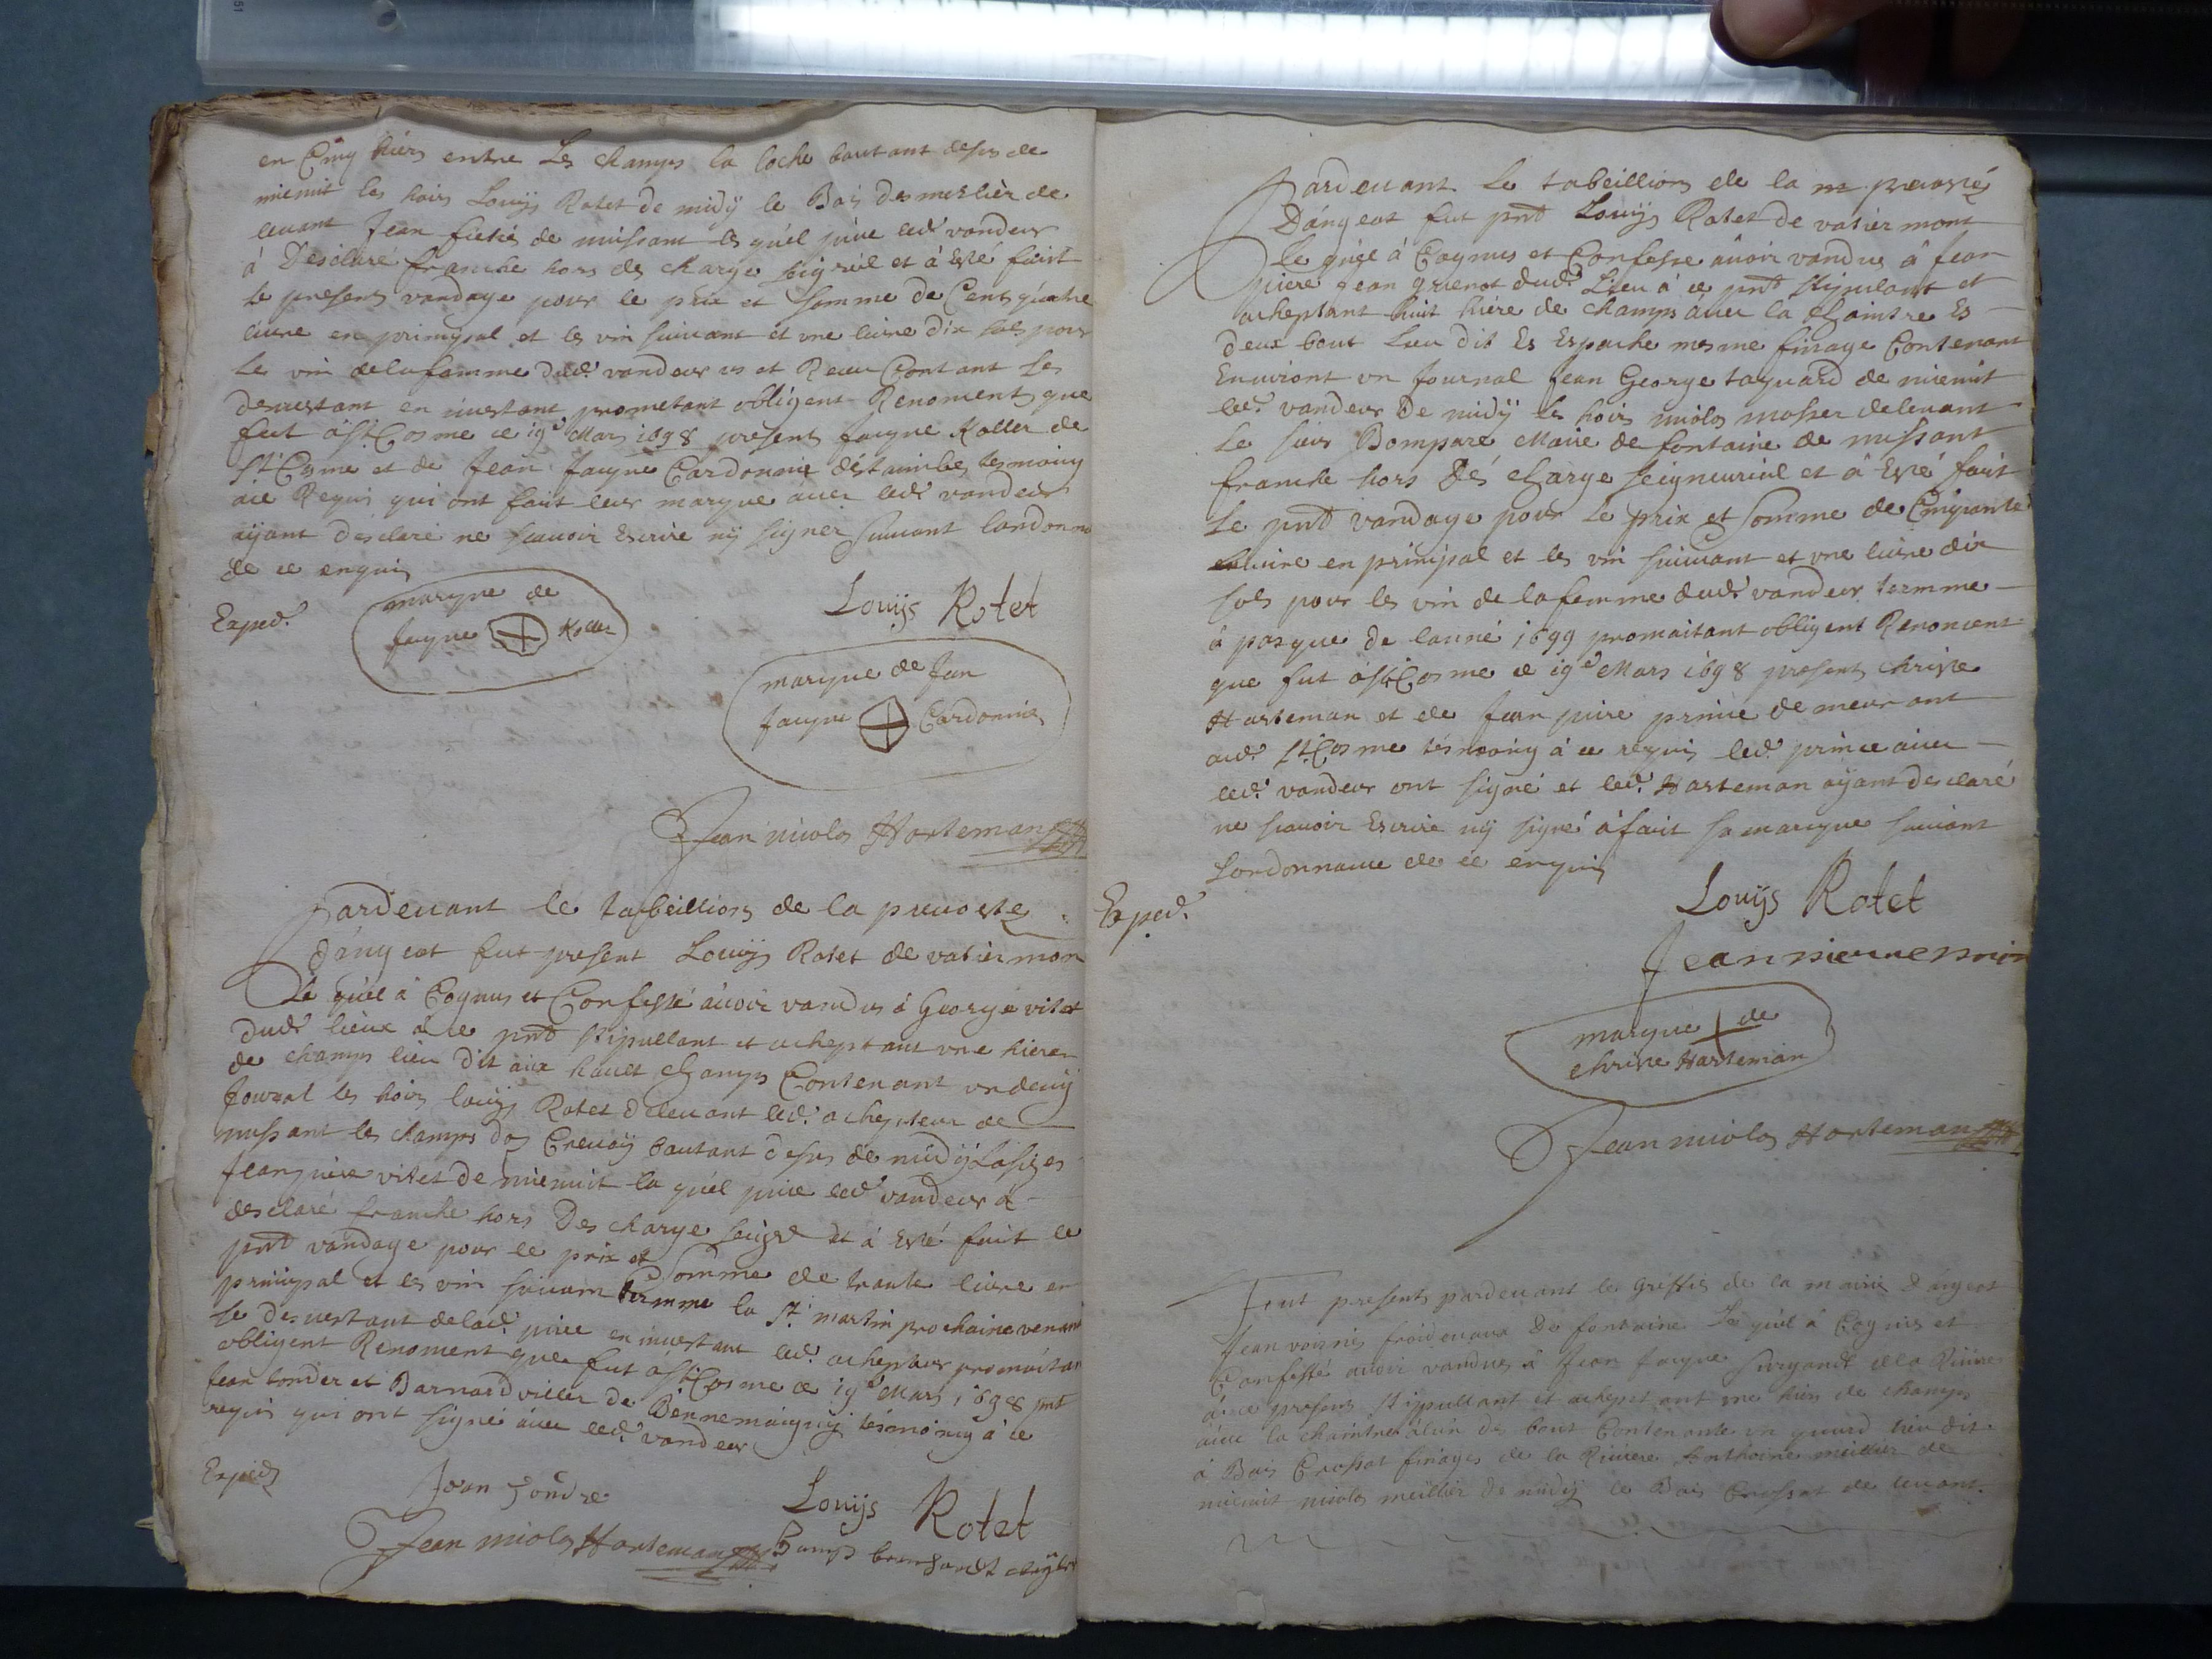 en Cinq hiers entre Les champs la loche boutant desus de
mienuit les hoirs Louijs Rotet de midÿ le Bois des meslier de
levant Jean fietié de missant les quél piéce led.t vandeur
à Desclaré franche hors de charge seigreül et à Esté faict
Le present vandage pour le prix et somme de Cent quatre
livre en principal et les vin suivant et vne livre dix sols pour
Le vin de la famme dud.t vandeur us et Receu Contant Le
desvestant en investant prometant obligent Renoment que
feut á St. Cosme ce 19e Mars 1698 present Jacque Koller de
St. Cosme et de Jean Jacque Cardonnie déstaimbe tesmoing
ace Requis qui ont fait leur marque avec led.t vandeur
aÿant desclaré ne scauoir Escrire nÿ signer suivant lordonna
de ce enquis
Exped.
marque de
Jacque Koller
Louijs Rotet
marque de Jean
Jacque Cardonnie
Jean nicolas Horteman
Pardeuant le tabeillions de la preuosté
dángeot fut present Louijs Rotet de vatiermon
Le quél à Cognus et Confessé ávoir vandus à George vitet
dud.t lieux à ce pnt stipullant et acheptant vne hiere
de champs lieu dit aix hauet champs Contenant vn demÿ
Journal les hoirs louijs Rotet de levant led. achepteur de
missant les champs dos Crevaÿ boutant desus de midÿ
Jean piere vitet de mienuit la quél piéce led.t vandeur à
desclaré franche hors Des charge seigr. et à Esté fait le
pnt vandage pour le prix et somme de trante livre en
principal et les vin suivant termme la St. martin prochaine venant
Le desvestant de lad. piéce en investant led. achepteur promaitan
obligent Renoment que fut a St. Cosme ce 19e Mars 1698 pnt
Jean tonder et Barnard viller de Bennemaigny tésmoing à ce
requis qui ont signé avec led.t vandeur
Exped.
Joan Tondre
Louijs Rotet
Jean nicolas Horteman
Pardeuant Le tabeillions de la preuosté
Dángeot fut pnt Louijs Rotet de vatiermont
Le quél à Cognus et Confesse ávoir vandus à Jean
piere Jean grienot dud.t Lieu à ce pnt stipulant et
acheptant huit hiére de champs ávec la chaintre Es
deux bout Lieu dit Es Espoche mesme finage Contenant
Enuiront vn Journal Jean George taquard de mienuit
led. vandeur de midÿ les hoirs nicolas mosser de levant
Le sieur Bompare Maire de fontaine de missant
franche hors dés charge seigneuriul et à Esté fait
Le pnt vandage pour Le prix et somme de Cinquante
livire en principal et les vin suivant et vne livre dix
sols pour les vin de la femme dud.t vandeur termme
á pasque de lanné 1699 promaitant obligent Renoment
que fut á St. Cosme ce 19e Mars 1698 present christe
Harteman et de Jean piere prince demeurant
aud. St. Cosme tésmoing à ce requis led. prince avec
led. vandeur ont signé et led. Harteman aÿant desclaré
ne scavoir Escrire nÿ signé á fait sa marque suivant
Lordonnance de ce enquis
Exped.
Louijs Rotet
Jean pierre
marque de
christe Harteman
Jean nicolas Horteman
Feut present pardeuant le Greffié de la mairie dángeot
Jean voinnié froidevaux de fontaine Le quél à Cognus et
Confessé avoir vandus á Jean Jacque surgandt de la Riviere
à ce present stipullant et acheptant vne hiere de champs
avec la chaintre álun des bout Contenante vn quard lieu dit
á Bois Crossat finages de la Riviere Anthoine meillier de
mienuit nicolas meillier de midÿ le Bois Crossat de levant.